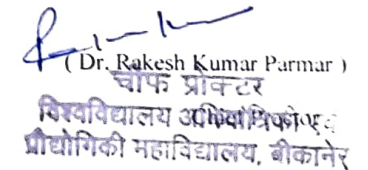 ( Dr. Rakesh Kumar Parmar )
चीफ प्रोक्टर
विश्वविद्यालय अभियांत्रिकी एवं
प्रौद्योगिकी महाविद्यालय, बीकानेर